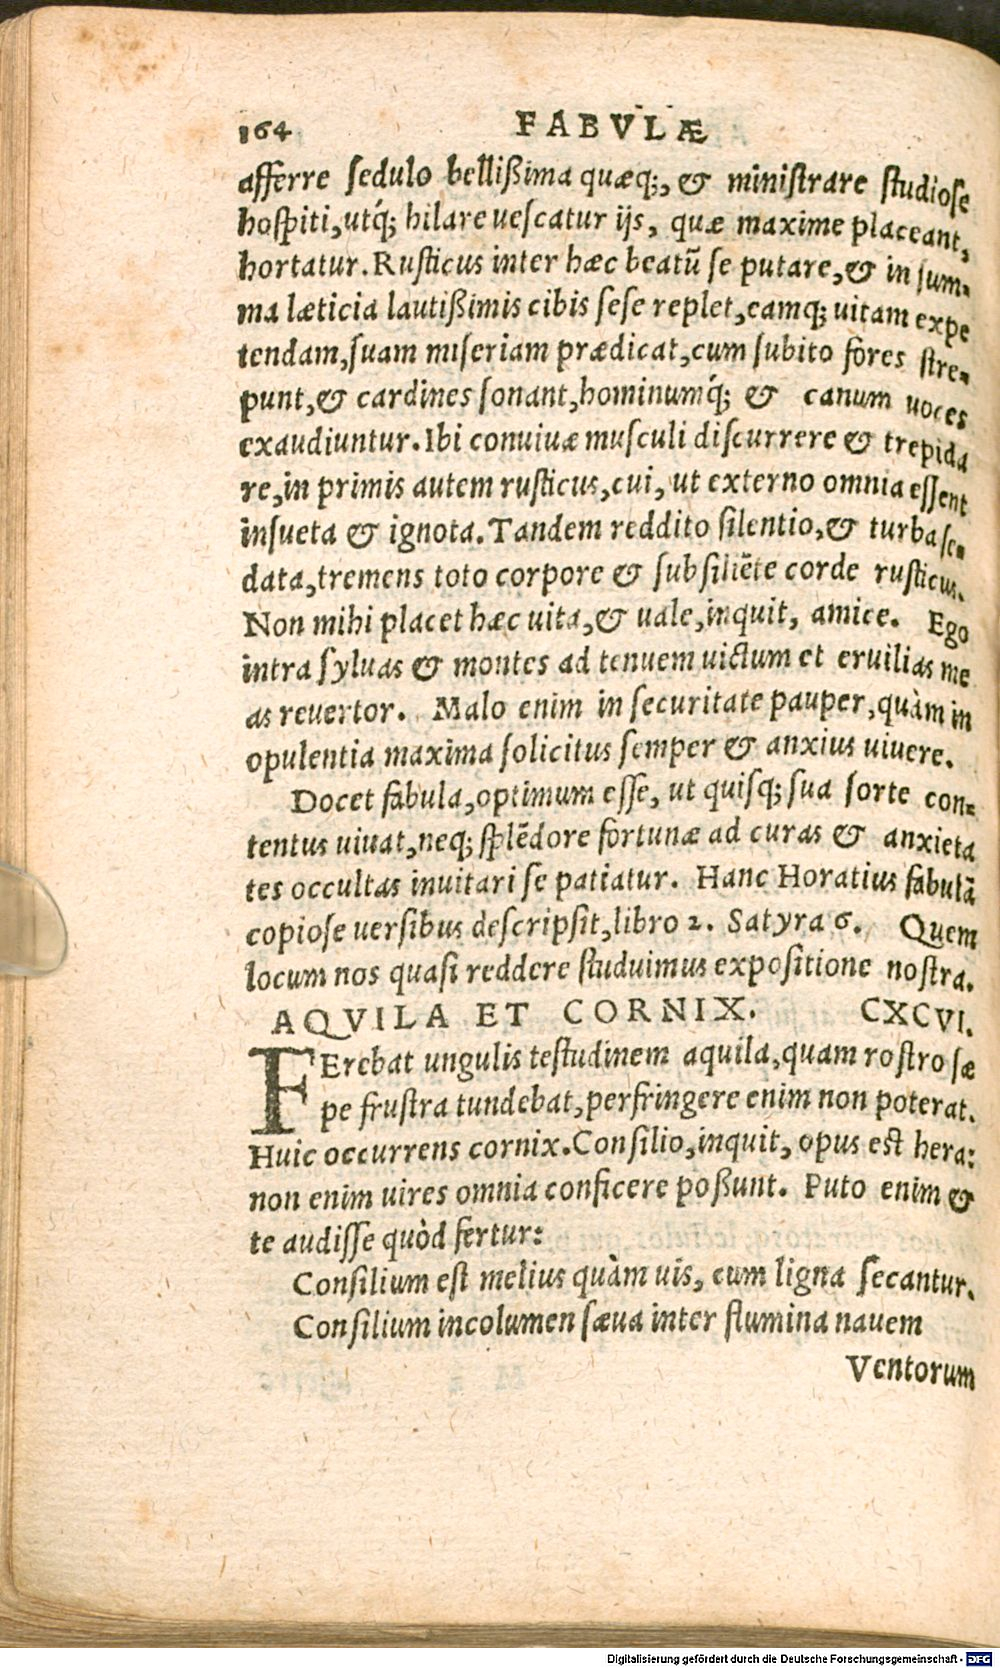 164 FABVLÆ
afferre ſedulo belliſsima quæq́;, & miniſtrare ſtudioſe
hoſpiti, utq́; hilare ueſcatur ijs, quæ maxime placeant,
hortatur. Ruſticus inter hæc beatũ ſe putare, & in ſum-
ma læticia lautiſsimis cibis ſeſe replet, eamq; uitam expe
tendam, ſuam miſeriam prædicat, cum ſubito fores ſtre-
punt, & cardines ſonant, hominumq́; & canum uoces
exaudiuntur. Ibi conuiuæ muſculi diſcurrere & trepida
re, in primis autem ruſticus, cui, ut externo omnia eſſent
inſueta & ignota. Tandem reddito ſilentio, & turba ſe-
data, tremens toto corpore & ſubſiliẽte corde ruſticus.
Non mihi placet hæc uita, & uale, inquit, amice. Ego
intra ſyluas & montes ad tenuem uictum et eruilias me
as reuertor. Malo enim in ſecuritate pauper, quàm in
opulentia maxima ſolicitus ſemper & anxius uiuere.
Docet fabula, optimum eſſe, ut quiſq; sua ſorte con-
tentus uiuat, neq; ſplẽdore fortunæ ad curas & anxieta
tes occultas inuitari ſe patiatur. Hanc Horatius fabulã
copioſe uerſibus deſcripſit, libro 2. Satyra 6. Quem
locum nos quaſi reddere ſtuduimus expoſitione noſtra.
AQVILA ET CORNIX. CXCVI.
FErebat ungulis teſtudinem aquila, quam roſtro ſæ
pe fruſtra tundebat, perfringere enim non poterat.
Huic occurrens cornix. Conſilio, inquit, opus eſt hera:
non enim uires omnia conficere poſsunt. Puto enim &
te audiſſe quòd fertur:
Conſilium eſt melius quàm uis, cum ligna ſecantur.
Conſilium incolumen ſæua inter flumina nauem
Ventorum
Digitalisierung gefördert durch die Deutsche Forschungsgemeinschaft - DFG